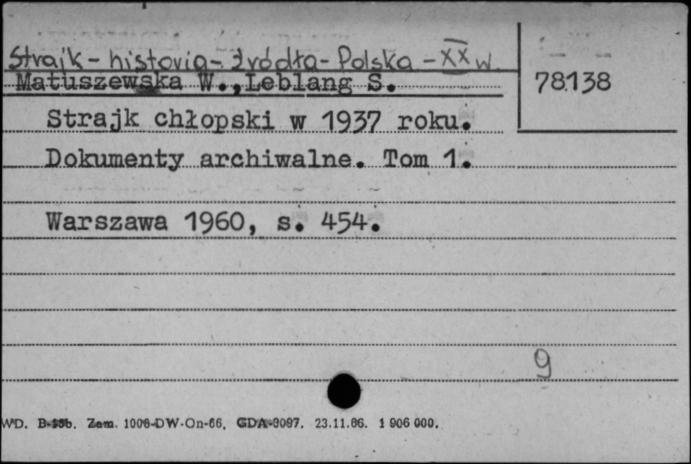 Strajk - historia - źródła - Polska - XX w.
Matuszewska W., Leblang S.
78138
Strajk chłopski w 1937 roku.
Dokumenty archiwalne. Tom 1.
Warszawa 1960, s. 454.
9
WD. Zam. 1006-DW-On-66, GDA-3097. 23.11.66. 1 906 000.